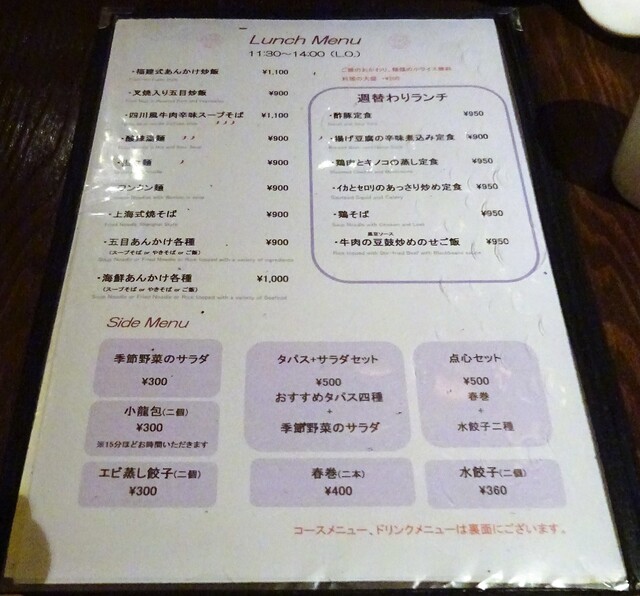 Lunch Menu
11:30〜14:00 (L.O.)
・福建式あんかけ炒飯 ¥1,100
・叉焼入り五目炒飯 ¥900
・四川風牛肉辛味スープそば ¥1,100
¥900
麺 ¥900
ンタン麺 ¥900
・上海式焼そば ¥900
Fried Noodle Shanghai Style
・五目あんかけ各種 ¥900
(スープそば or やきそば or ご飯)
Soup Noodle or Fried Noodle or Rice topped with a variety of ingredients
・海鮮あんかけ各種 ¥1,000
(スープそば or やきそば or ご飯)
Soup Noodle or Fried Noodle or Rice topped with a variety of Seafood
週替わりランチ
・酢豚定食 ¥950
・揚げ豆腐の辛味煮込み定食 ¥900
・鶏肉とキノコの蒸し定食 ¥950
・イカとセロリのあっさり炒め定食 ¥950
・鶏そば ¥950
黒豆ソース
・牛肉の豆鼓炒めのせご飯 ¥950
Side Menu
季節野菜のサラダ
¥300
小龍包(二個)
¥300
※15分ほどお時間いただきます
エビ蒸し餃子(二個)
¥300
タパス+サラダセット
¥500
おすすめタパス四種
+
季節野菜のサラダ
春巻(二本)
¥400
点心セット
¥500
春巻
+
水餃子二種
水餃子(二個)
¥360
コースメニュー、ドリンクメニューは裏面にございます。